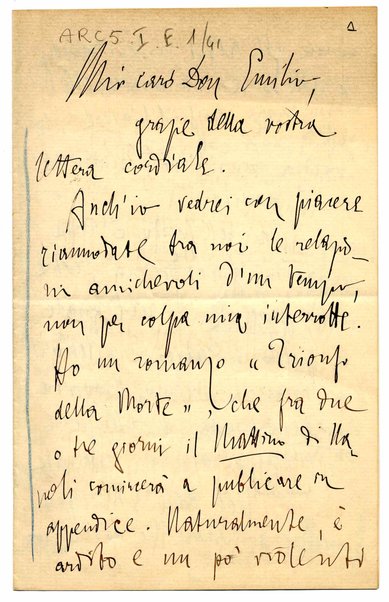 ARC5. I. E. 1/41
1
Mio caro Don Emilio,
grazie della vostra
lettera cordiale.
Anch'io vedrei con piacere
riannodate tra noi le relazio-
ni amichevoli d'un tempo,
non per colpa mia interrotte.
Ho un romanzo "Trionfo
della Morte", che fra due
o tre giorni il Mattino di Na-
poli comincerà a publicare in
appendice. Naturalmente, è
ardito e un po' violento